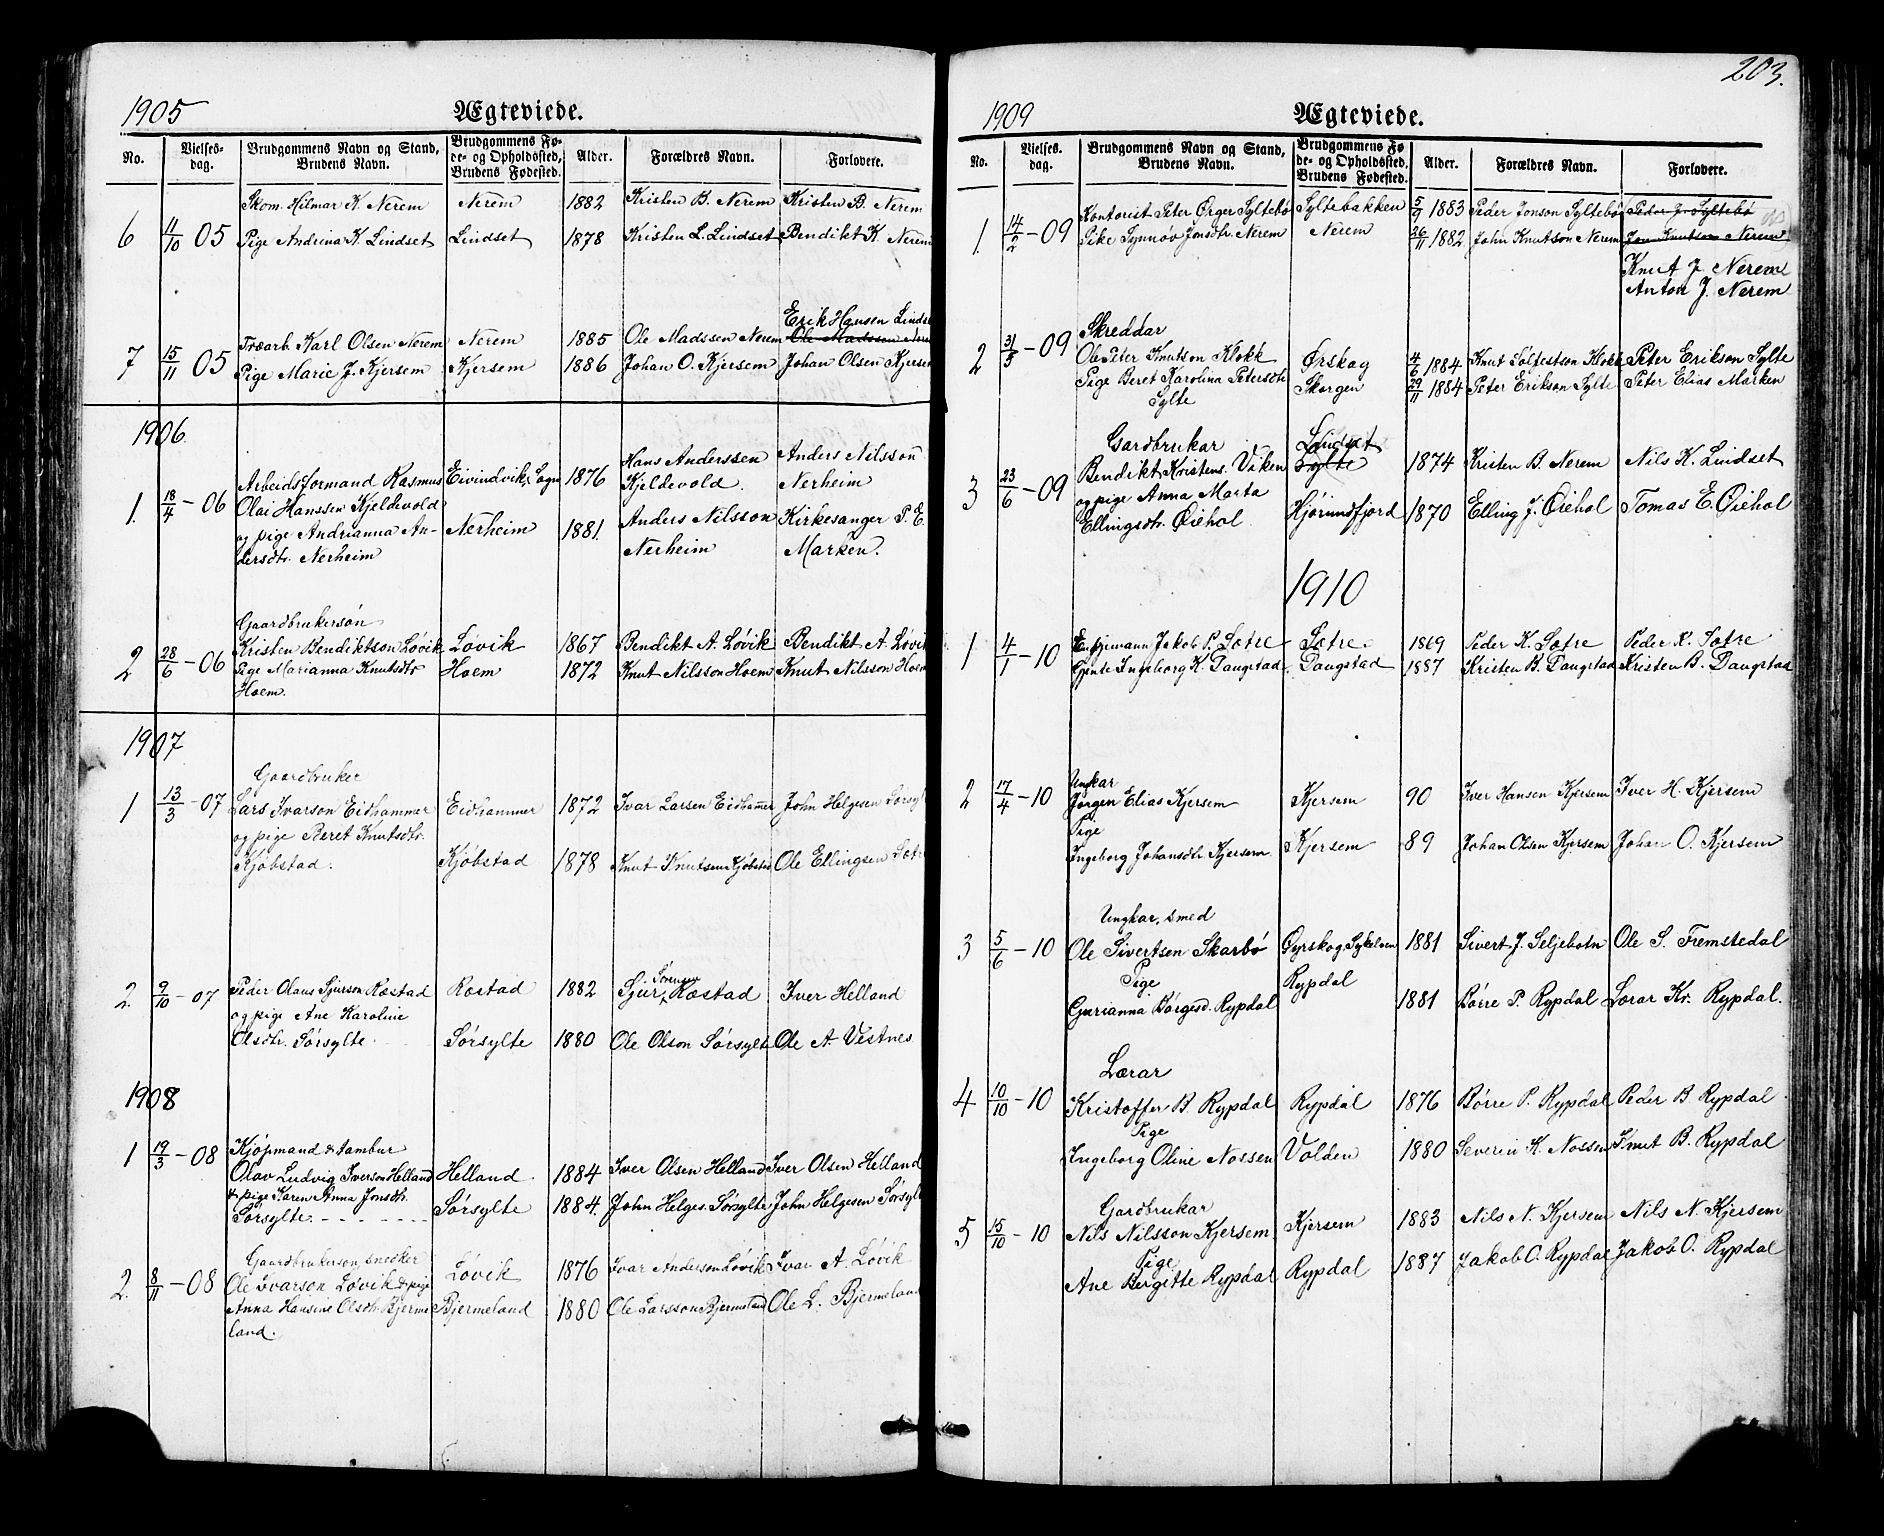 1905 Ægteviede.
No. Vielses-dag. Brudgommens Navn og Stand, Brudens Navn. Brudgommens Fø-de- og Opholdssted, Brudens Fødested. Alder. Forældres Navn. Forlovere.
Skom. Hilmar K. Nerem Nerem 1882 Kristen B. Nerem Kristen B. Nerem
6 11/10 05 Pige Andrina K. Lindset Lindset 1878 Kristen L. Lindset Bendikt K. Nerem
Erik Hansen Lindse
Træarb. Karl Olsen Nerem Nerem 1885 Ole Madssen Nerem Ole Madssen Nere
7 15/11 05 Pige Marie J. Kjersem Kjersem 1886 Johan O. Kjersem Johan Olsen Kjersem
1906.
Hans Anderssen Anders Nilsson
Arbeidsformand Rasmus Eivindvik, Sogn 1876 Kjeldevold. Nerheim
1. 18/4 - 06 Olai Hanssen Kjeldevold
og pige Andrianna An- Nerheim 1881. Anders Nilsson Kirkesanger P. E.
dersdtr. Nerheim Nerheim Marken.
Gaardbrukersøn
Kristen Bendiktson Løvik Løvik 1867 Bendikt A. Løvik Bendikt A. Løvik
2 28/6 - 06 Pige Marianna Knutsdtr Hoem 1872 Knut Nilsson Hoem Knut Nilsson Hoem
Hoem.
1907
Gaardbruker
1 13/3 - 07 Lars Ivarson Eidhammer Eidhammer 1872 Ivar Larsen Eidhammer John Helgesen Sørsyl
og pige Beret Knutsdtr.
Kjøbstad. Kjøbstad 1878 Knut Knutsen Kjøbstad Ole Ellingsen Sætr
Sørensen
2. 9/10 - 07 Peder Olaus Sjurson Rostad Rostad 1882 Sjur Rostad Iver Helland
og pige Ane Karoline
Olsdtr. Sørsylte Sørsylte 1880 Ole Olson Sørsylte Ole A. Vestnes
1908
1 19/3 - 08 Kjøpmand & tambur
Olav Ludvig Iverson Helland Helland 1884 Iver Olsen Helland Iver Olsen Helland
& pige Karen Anna Jonsdtr.
Sørsylte. - - - - - - Sørsylte 1884. John Helges. Sørsylte John Helgesen Sørsyl
Gaardbrukerson, snedker
2. 8/11 - 08 Ole Ivarson Løvik & pige Løvik 1876 Ivar Anderson Løvik Ivar A. Løvik
Anna Hansine Olsdtr Bjerme Bjermeland 1880 Ole Larsson Bjermeland Ole L. Bjermeland
land.
203.
1909 Ægteviede.
No. Vielses-dag. Brudgommens Navn og Stand, Brudens Navn. Brudgommens Fø-de- og Opholdssted, Brudens Fødested. Alder. Forældres Navn. Forlovere.
Kontorist Peter Ørger Syltebø Syltebakken 5/9 1883 Peder Jonson Syltebø Peder J. Syltebø
1. 14/2 - 09 Pike Synnøv Jonsdtr Nerem Nerem 26/11 1882 John Knutson Nerem Jon Knutson Nerem
Knut J. Nerem
Anton J. Nerem
Skreddar
2 31/5 - 09 Ole Peter Knutson Klokk Ørskog 4/6 1884 Knut Solfestson Klokk Peter Erikson Sylte
Pige Beret Karolina Petersdtr Skorgen 29/11 1884 Peter Erikson Sylte Peter Elias Marken
Sylte
Gardbrukar Lindset
3 23/6 - 09 Bendikt Kristens. Viken Sylte 1874 Kristen B. Nerem Nils K. Lindset
og pige Anna Marta
Ellingsdtr. Øiehol Hjørundfjord 1870 Elling J. Øiehol Tomas E. Øiehol
1910
1 4/1 - 10 Enkjemann Jakob P. Sætre Sætre. 1869 Peder K. Sætre Peder K. Sætre
Gjente Ingeborg K. Daugstad Daugstad 1887 Kristen B. Daugstad Kristen B. Daugstad
Ungkar
2 17/4 - 10 Jørgen Elias Kjersem Kjersem 90 Iver Hansen Kjersem Iver H. Kjersem
Pige
Ingeborg Johansdtr. Kjersem Kjersem 89 Johan Olsen Kjersem Johan O. Kjersem
Ungkar, smed
3 5/6 - 10 Ole Sivertsen Skarbø Øyrskog, Sykelven 1881 Sivert J. Seljebotn Ole S. Fremstedal
Pige Rypdal
Gurianna Børgesd. Rypdal 1881 Børre P. Rypdal Lærar Kr. Rypdal.
Lærar
4 10/10 - 10 Kristoffer B. Rypdal Rypdal 1876 Børre P. Rypdal Peder B. Rypdal
Pige
Ingeborg Oline Nossen Volden 1880 Severin K. Nossen Knut B. Rypdal
Gardbrukar
5 15/10 - 10 Nils Nilsson Kjersem Kjersem 1883 Nils N. Kjersem Nils N. Kjersem
Pige
Ane Bergitte Rypdal Rypdal 1887 Jakob O. Rypdal Jakob O. Rypdal